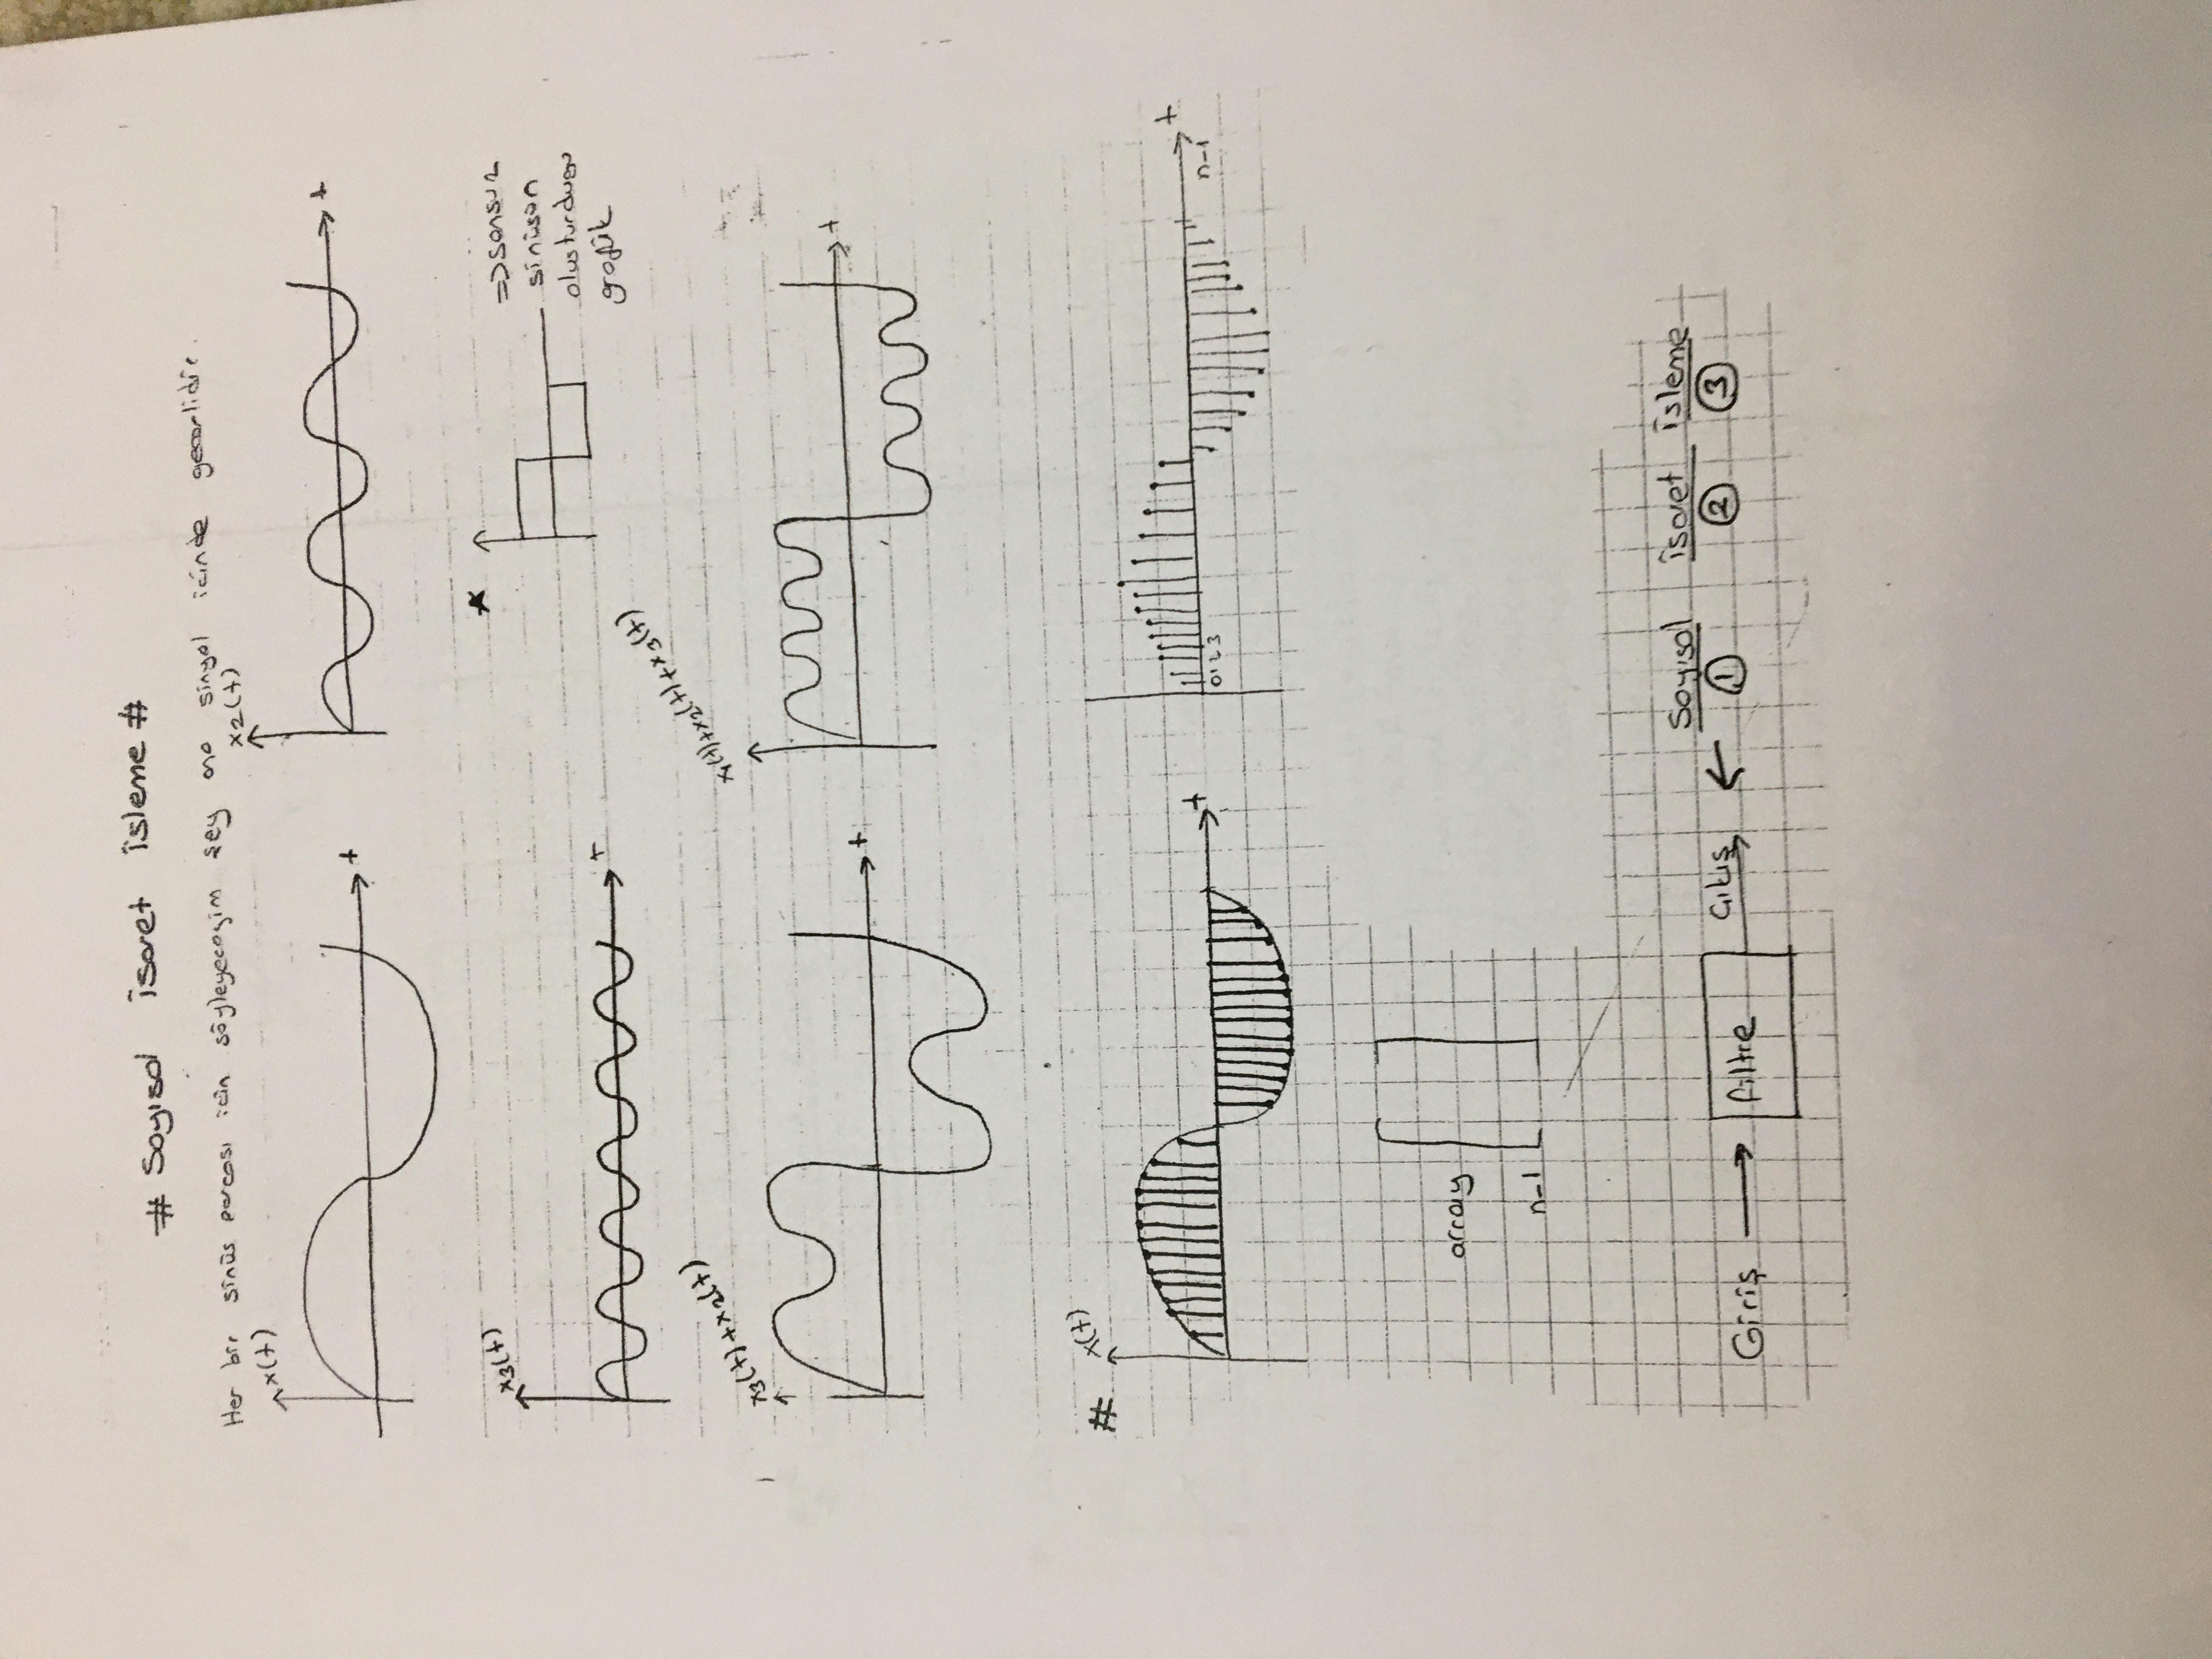 # Sayısal İşaret İşleme #
Her bir sinüs parçası için söyleyeceğim şey ana sinyal içinde geçerlidir.
x(t)
t
x2(t)
t
x3(t)
t
*
=> sonsuz
sinüsün
oluşturduğu
grafik
x3(t)+x2(t)
t
x1(t)+x2(t)+x3(t)
t
#
x(t)
t
0 1 2 3
n-1
t
array
n-1
Giriş → filtre Çıkış ← Sayısal İşaret İşleme
① ② ③